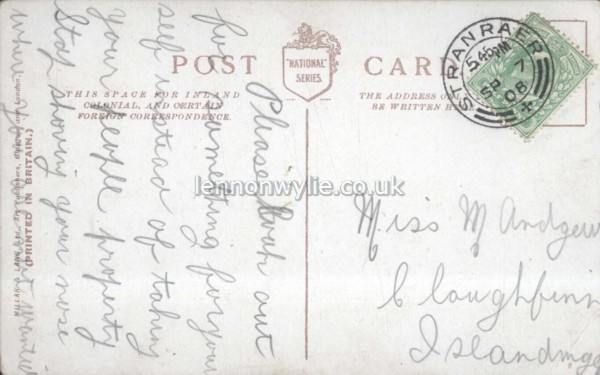 POST CARD
"NATIONAL" SERIES.
THIS SPACE FOR INLAND
COLONIAL, AND CERTAIN
FOREIGN CORRESPONDENCE.
THE ADDRESS ON
BE WRITTEN H
STRANRAER
5.45 PM
SP 7
08
(PRINTED IN BRITAIN.)
lennonwylie.co.uk
Please look out
for something for your
self instead of taking
your people property
Stop shoving your nose
where your not wanted
Miss M Andrew
Cloughfinn
Islandmag